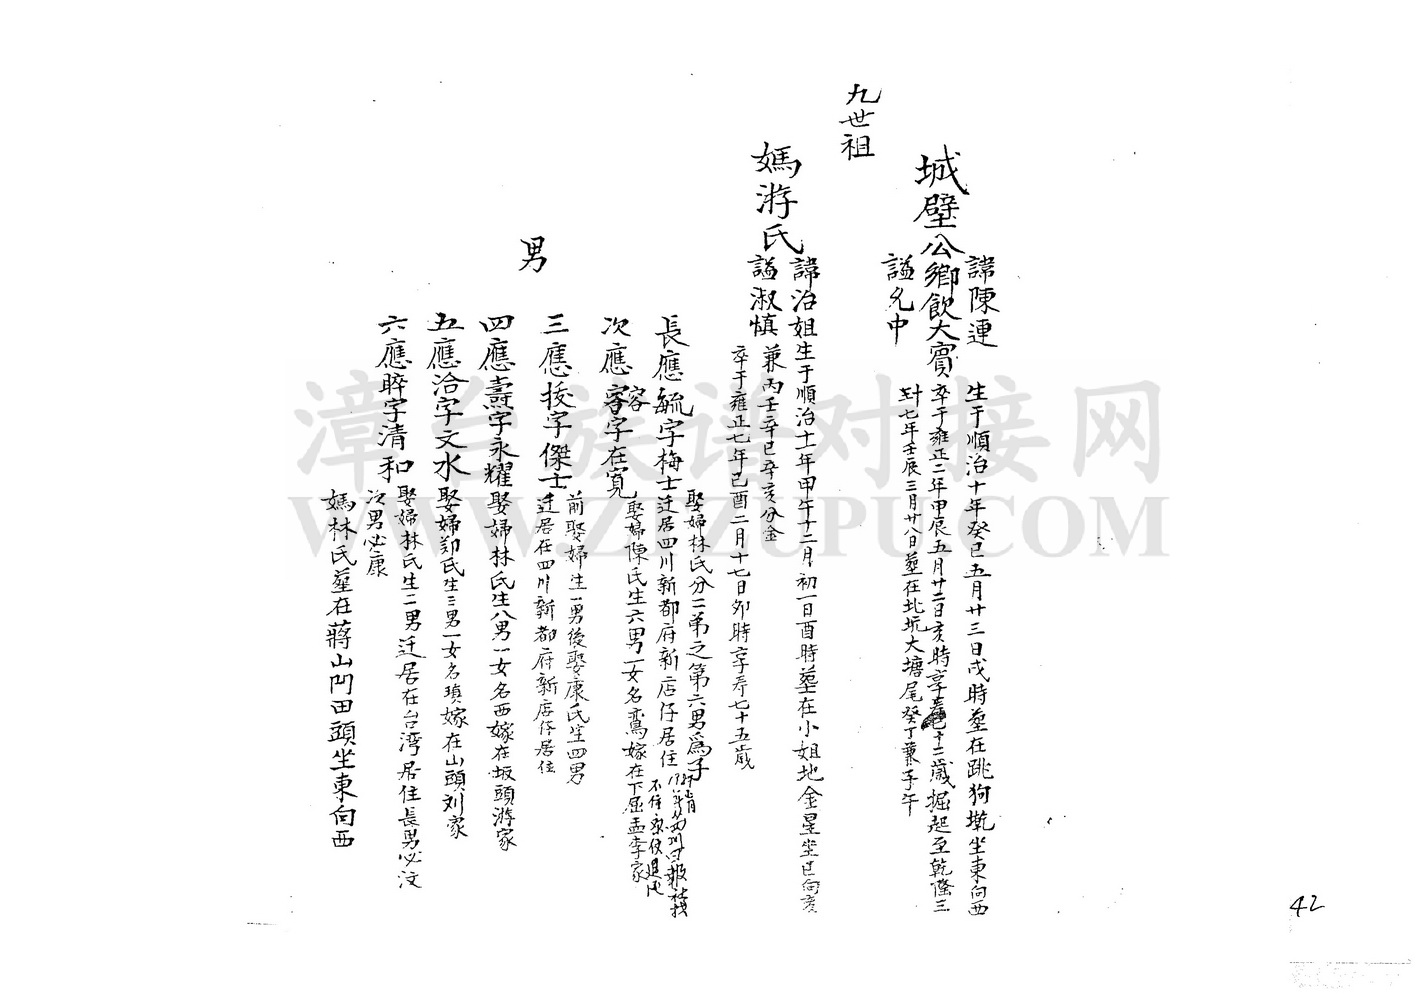 諱陳連
生于順治十年癸巳五月廿三日戌時墓在跳狗墘坐東向西
城壁公鄉飲大賓
卒于雍正二年甲辰五月廿二日亥時享十二歲掘起至乾隆三
謚允中
七年壬辰三月廿八日墓在北坑大塘尾癸丁兼子午
九世祖
諱治姐生于順治十一年甲午十二月初一日酉時墓在小姐地金星坐巳向亥
媽游氏
謚淑慎
兼丙壬辛巳辛亥分金
卒于雍正七年己酉二月十七日卯時享寿七十五歲
男
娶婦林氏分二弟之第六男為子
長應毓字梅士迁居四川新都府新店仔居住
次應容字在寬
娶婦陳氏生六男一女名鸞嫁在下屈孟李家
前娶婦生一男後娶康氏生四男
三應按字傑士迁居在四川新都府新店仔居住
四應壽字永耀娶婦林氏生八男一女名西嫁在坂頭游家
五應洽字文水娶婦邹氏生三男一女名瑣嫁在山頭刘家
六應晬字清和娶婦林氏生二男迁居在台湾居住長男必汶
次男必康
媽林氏墓在蔣山門田頭坐東向西
42
漳台族谱对接网
WWW.ZTZUPU.COM